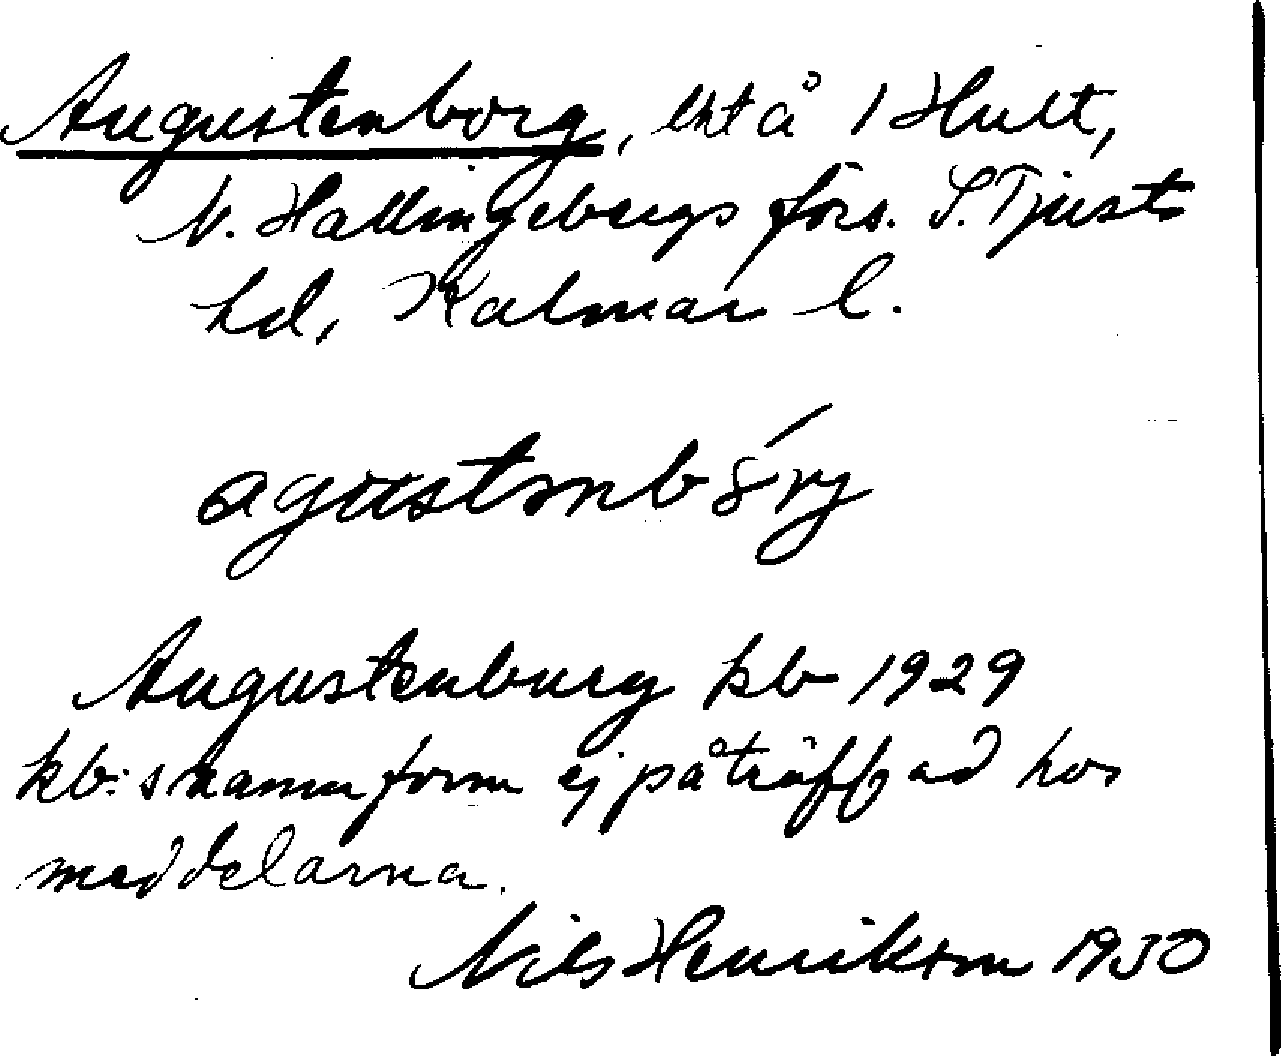 Augustenborg, lht å 1 Hult,
V. Hallingebergs förs. S. Tjusts
hd, Kalmar l.
Augustenburg kb 1929
kb:s namnform ej påträffad hos
meddelarna.
Nils Henrikson 1930